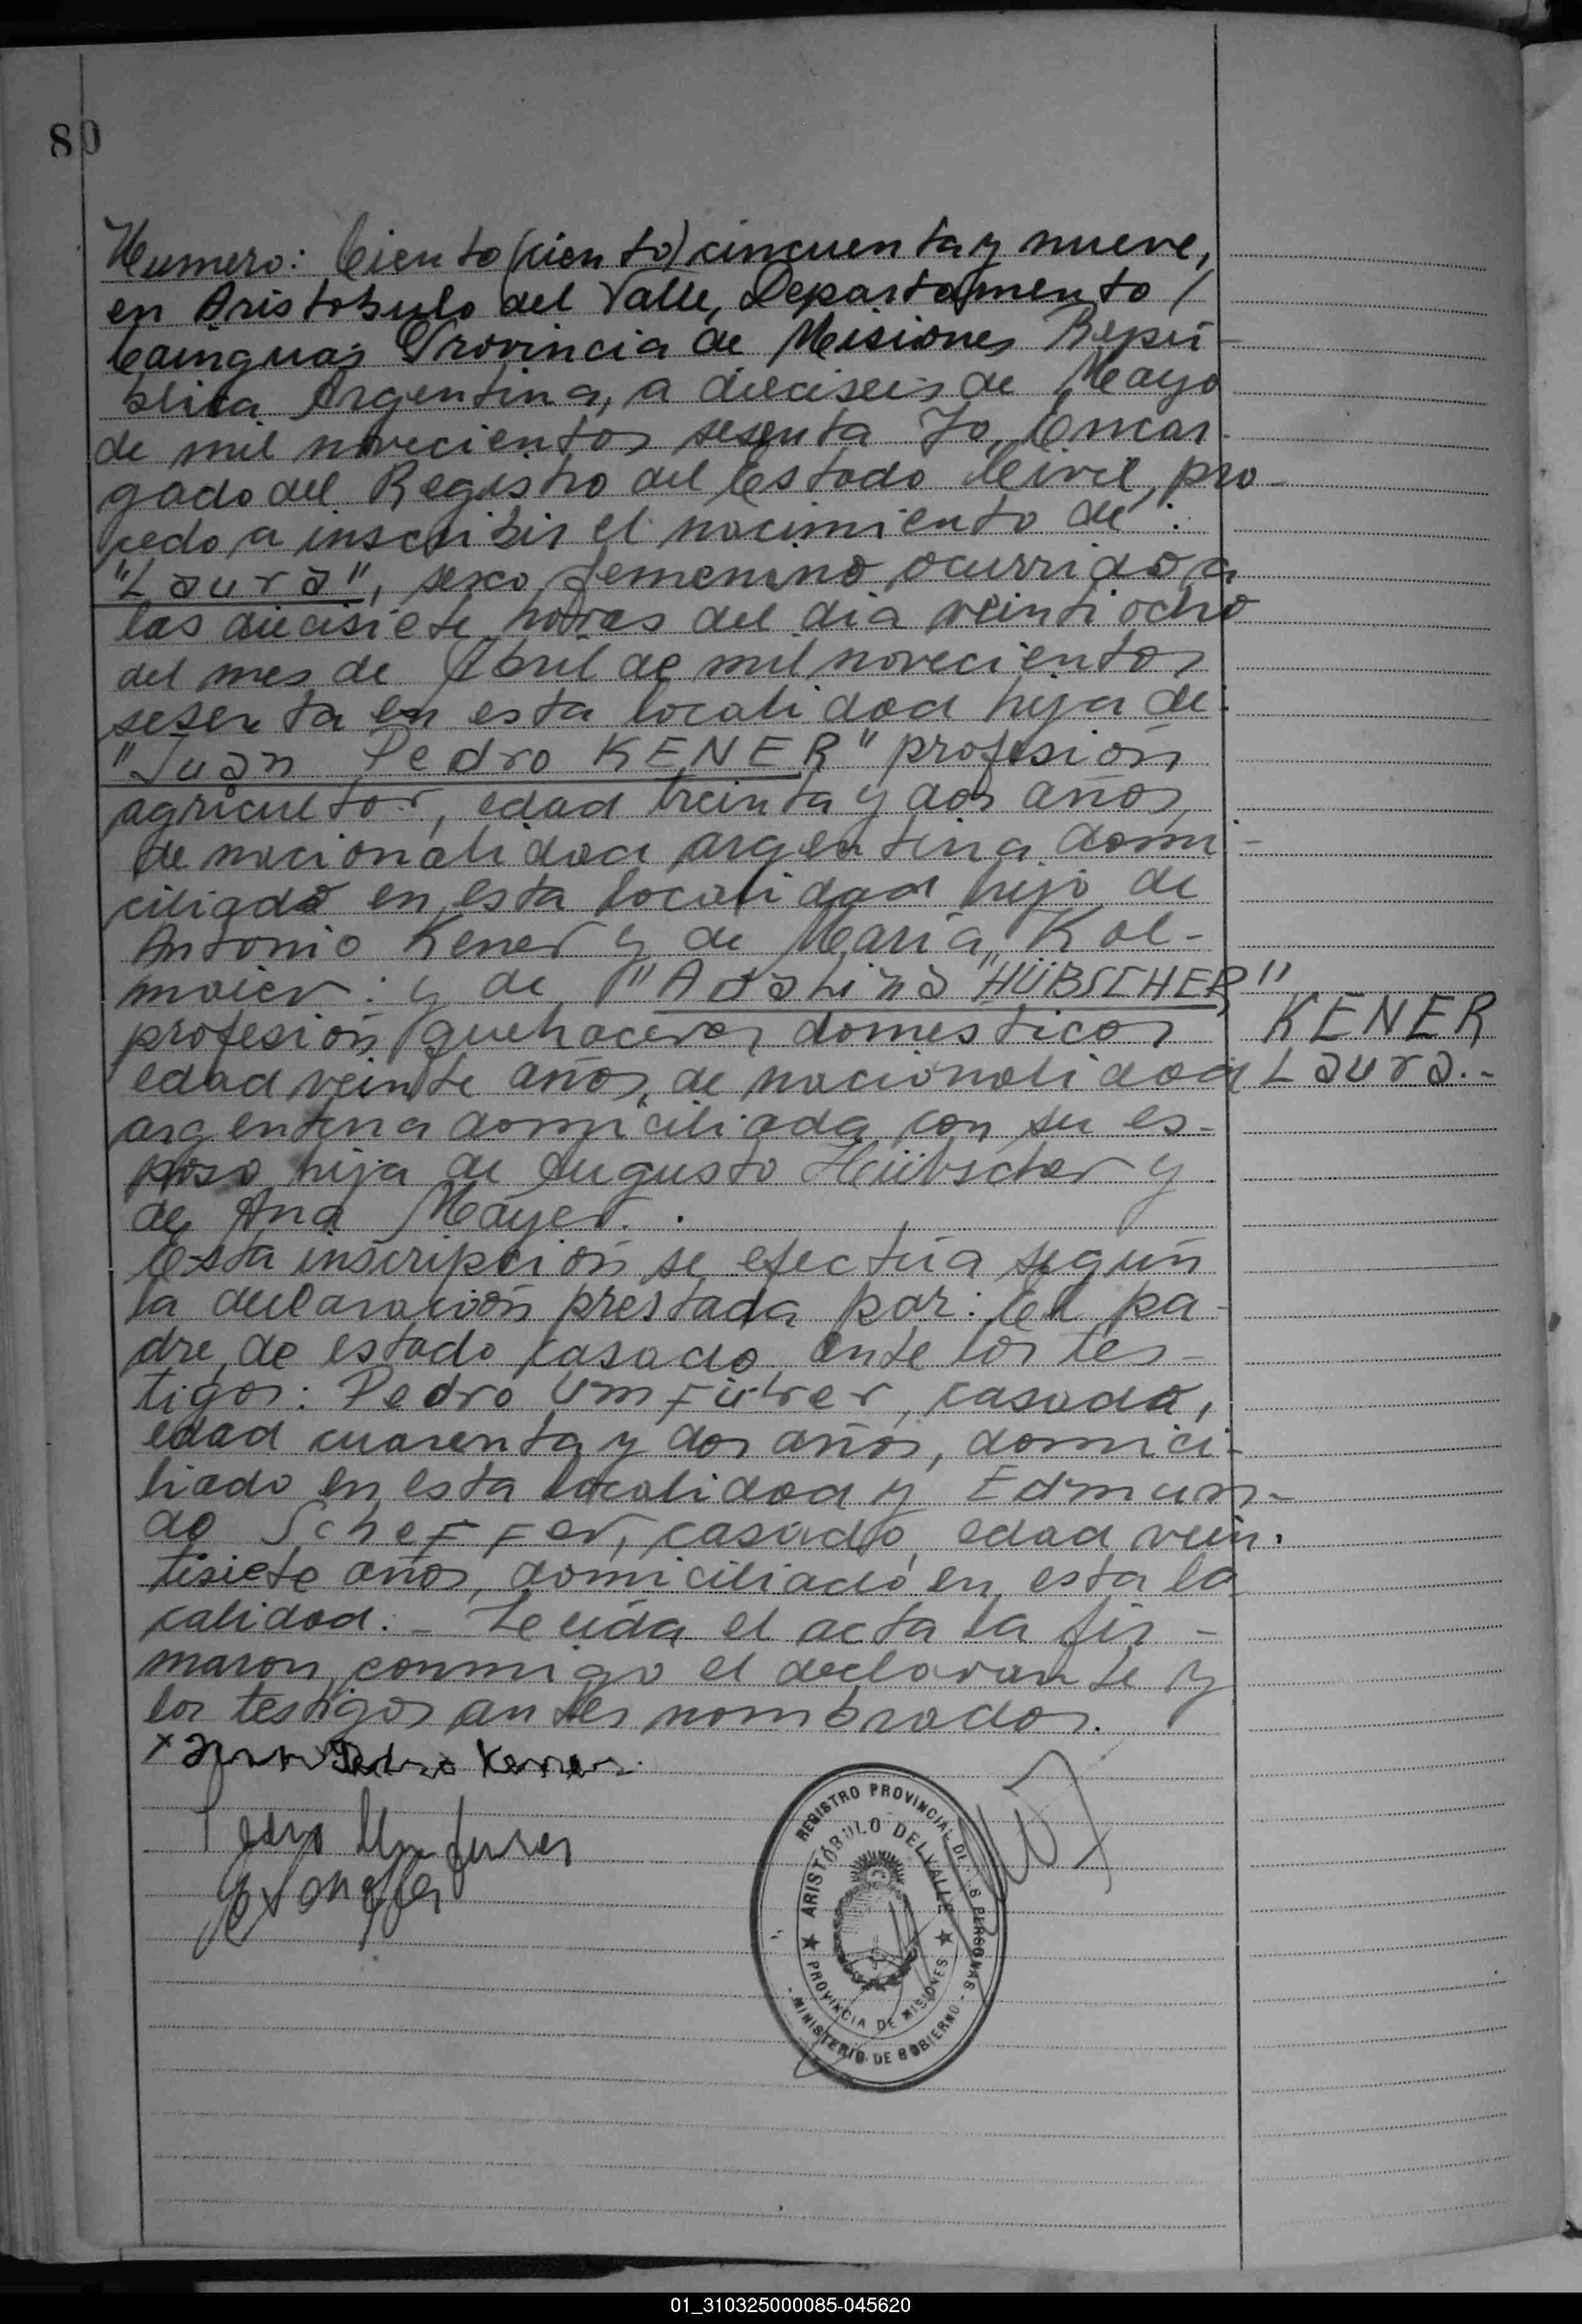 80
Numero: Ciento (ciento) cincuenta y nueve,
en Aristobulo del Valle, Departamento /
Cainguas Provincia de Misiones Repú-
blica Argentina, a dieciseis de Mayo
de mil novecientos sesenta Yo, Encar-
gado del Registro del Estado Civil, pro-
cedo a inscribir el nacimiento de :
"Laura", sexo femenino ocurrido a
las diecisiete horas del dia veintiocho
del mes de Abril de mil novecientos
sesenta en esta localidad hija de:
"Juan Pedro KENER" profesión
agricultor, edad treinta y dos años
de nacionalidad argentina domi-
ciliado en esta localidad hijo de
Antonio Kener y de Maria Kol-
maier : y de "Adahina HÜBSCHER"
profesión quehaceres domésticos
KENER
edad veinte años, de nacionalidad
Laura.-
argentina domiciliada con su es-
poso hija de Augusto Hübscher y
de Ana Mayer. .
Esta inscripción se efectúa según
la declaración prestada por: El pa-
dre, de estado casado ante los tes-
tigos: Pedro Umfürer, casado,
edad cuarenta y dos años, domici-
liado en esta localidad y Edmun-
do Scheffer, casado, edad vein-
tisiete años, domiciliado en esta lo
calidad. - Leída el acta la fir-
maron conmigo el declarante y
los testigos antes nombrados.
x Juan Pedro Kener
Pedro Umfurer
E Scheffer
REGISTRO PROVINCIAL DE PERSONAS
ARISTÓBULO DEL VALLE
PROVINCIA DE MISIONES
- MINISTERIO DE GOBIERNO -
01_310325000085-045620